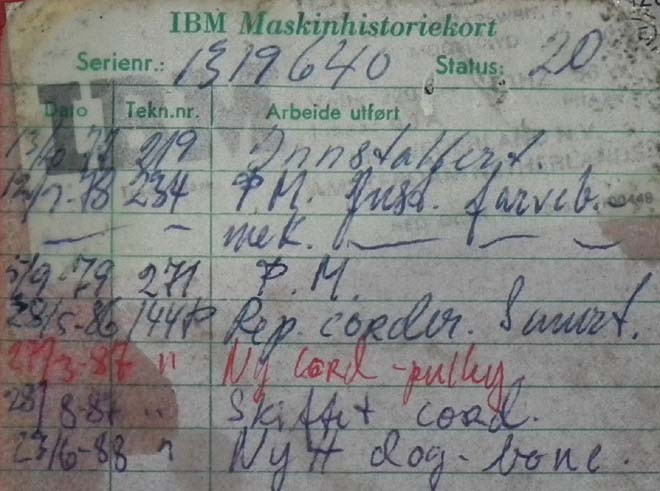 IBM Maskinhistoriekort
Serienr.: 1319640 Status: 20
IBM
Dato Tekn.nr. Arbeide utført
219 Innstallert.
12/7-78 234 P.M. Just. farveb.
— " — mek. — " —
5/9-79 271 P.M.
28/5-86 1447P Rep. corder. Smurt.
27/3-87 " Ny cord-pully
28/8-87 " Skiftet cord.
23/6-88 " Nytt dog-bone.